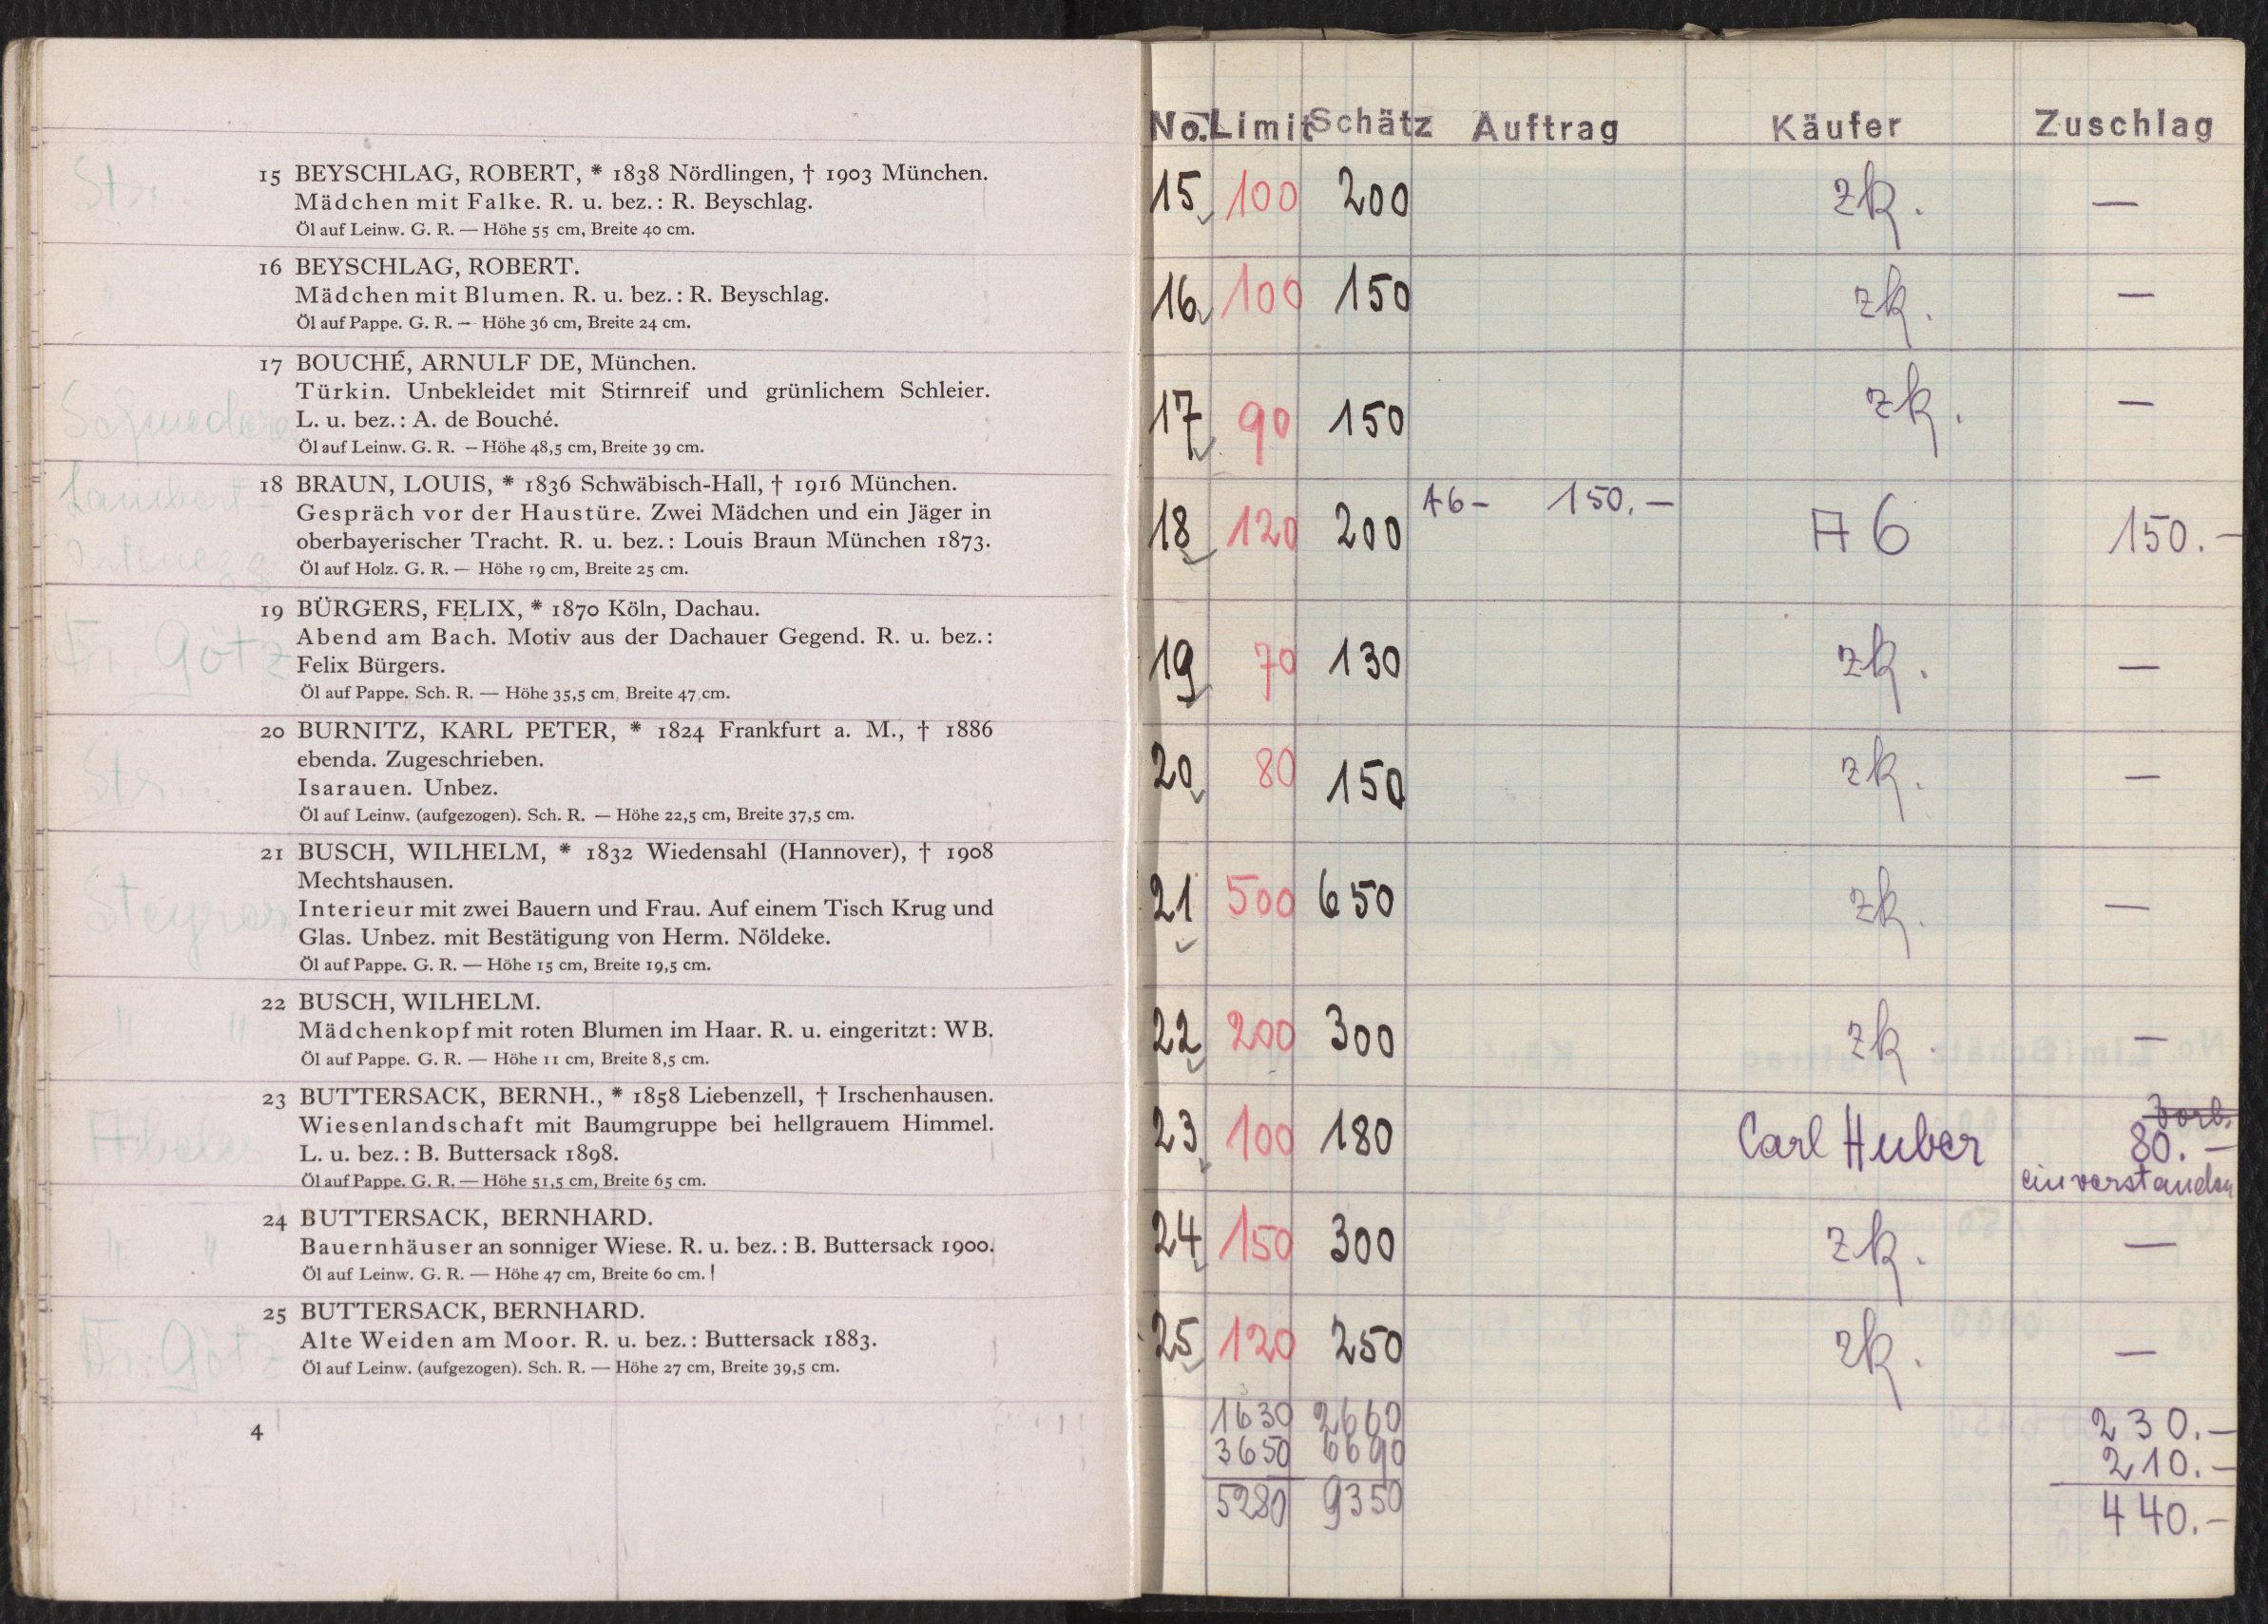 15 BEYSCHLAG, ROBERT, * 1838 Nördlingen, † 1903 München.
Mädchen mit Falke. R. u. bez.: R. Beyschlag.
Öl auf Leinw. G. R. — Höhe 55 cm, Breite 40 cm.
16 BEYSCHLAG, ROBERT.
Mädchen mit Blumen. R. u. bez.: R. Beyschlag.
Öl auf Pappe. G. R. — Höhe 36 cm, Breite 24 cm.
17 BOUCHÉ, ARNULF DE, München.
Türkin. Unbekleidet mit Stirnreif und grünlichem Schleier.
L. u. bez.: A. de Bouché.
Öl auf Leinw. G. R. — Höhe 48,5 cm, Breite 39 cm.
18 BRAUN, LOUIS, * 1836 Schwäbisch-Hall, † 1916 München.
Gespräch vor der Haustüre. Zwei Mädchen und ein Jäger in
oberbayerischer Tracht. R. u. bez.: Louis Braun München 1873.
Öl auf Holz. G. R. — Höhe 19 cm, Breite 25 cm.
Fr. Götz
19 BÜRGERS, FELIX, * 1870 Köln, Dachau.
Abend am Bach. Motiv aus der Dachauer Gegend. R. u. bez.:
Felix Bürgers.
Öl auf Pappe. Sch. R. — Höhe 35,5 cm, Breite 47 cm.
20 BURNITZ, KARL PETER, * 1824 Frankfurt a. M., † 1886
ebenda. Zugeschrieben.
Isarauen. Unbez.
Öl auf Leinw. (aufgezogen). Sch. R. — Höhe 22,5 cm, Breite 37,5 cm.
21 BUSCH, WILHELM, * 1832 Wiedensahl (Hannover), † 1908
Mechtshausen.
Interieur mit zwei Bauern und Frau. Auf einem Tisch Krug und
Glas. Unbez. mit Bestätigung von Herm. Nöldeke.
Öl auf Pappe. G. R. — Höhe 15 cm, Breite 19,5 cm.
" "
22 BUSCH, WILHELM.
Mädchenkopf mit roten Blumen im Haar. R. u. eingeritzt: WB.
Öl auf Pappe. G. R. — Höhe 11 cm, Breite 8,5 cm.
23 BUTTERSACK, BERNH., * 1858 Liebenzell, † Irschenhausen.
Wiesenlandschaft mit Baumgruppe bei hellgrauem Himmel.
L. u. bez.: B. Buttersack 1898.
Öl auf Pappe. G. R. — Höhe 51,5 cm, Breite 65 cm.
" "
24 BUTTERSACK, BERNHARD.
Bauernhäuser an sonniger Wiese. R. u. bez.: B. Buttersack 1900.
Öl auf Leinw. G. R. — Höhe 47 cm, Breite 60 cm.
Fr. Götz
25 BUTTERSACK, BERNHARD.
Alte Weiden am Moor. R. u. bez.: Buttersack 1883.
Öl auf Leinw. (aufgezogen). Sch. R. — Höhe 27 cm, Breite 39,5 cm.
4
No. Limit Schätz Auftrag Käufer Zuschlag
15 100 200 zk. —
16 100 150 zk. —
17 90 150 zk. —
18 120 200 A6 - 150.- A6 150.-
19 70 130 zk. —
20 80 150 zk. —
21 500 650 zk. —
22 200 300 zk. —
23 100 180 Carl Huber 80.-
einverstanden
24 150 300 zk. —
25 120 250 zk. —
1630 2660 230.-
3650 6690 210.-
5280 9350 440.-